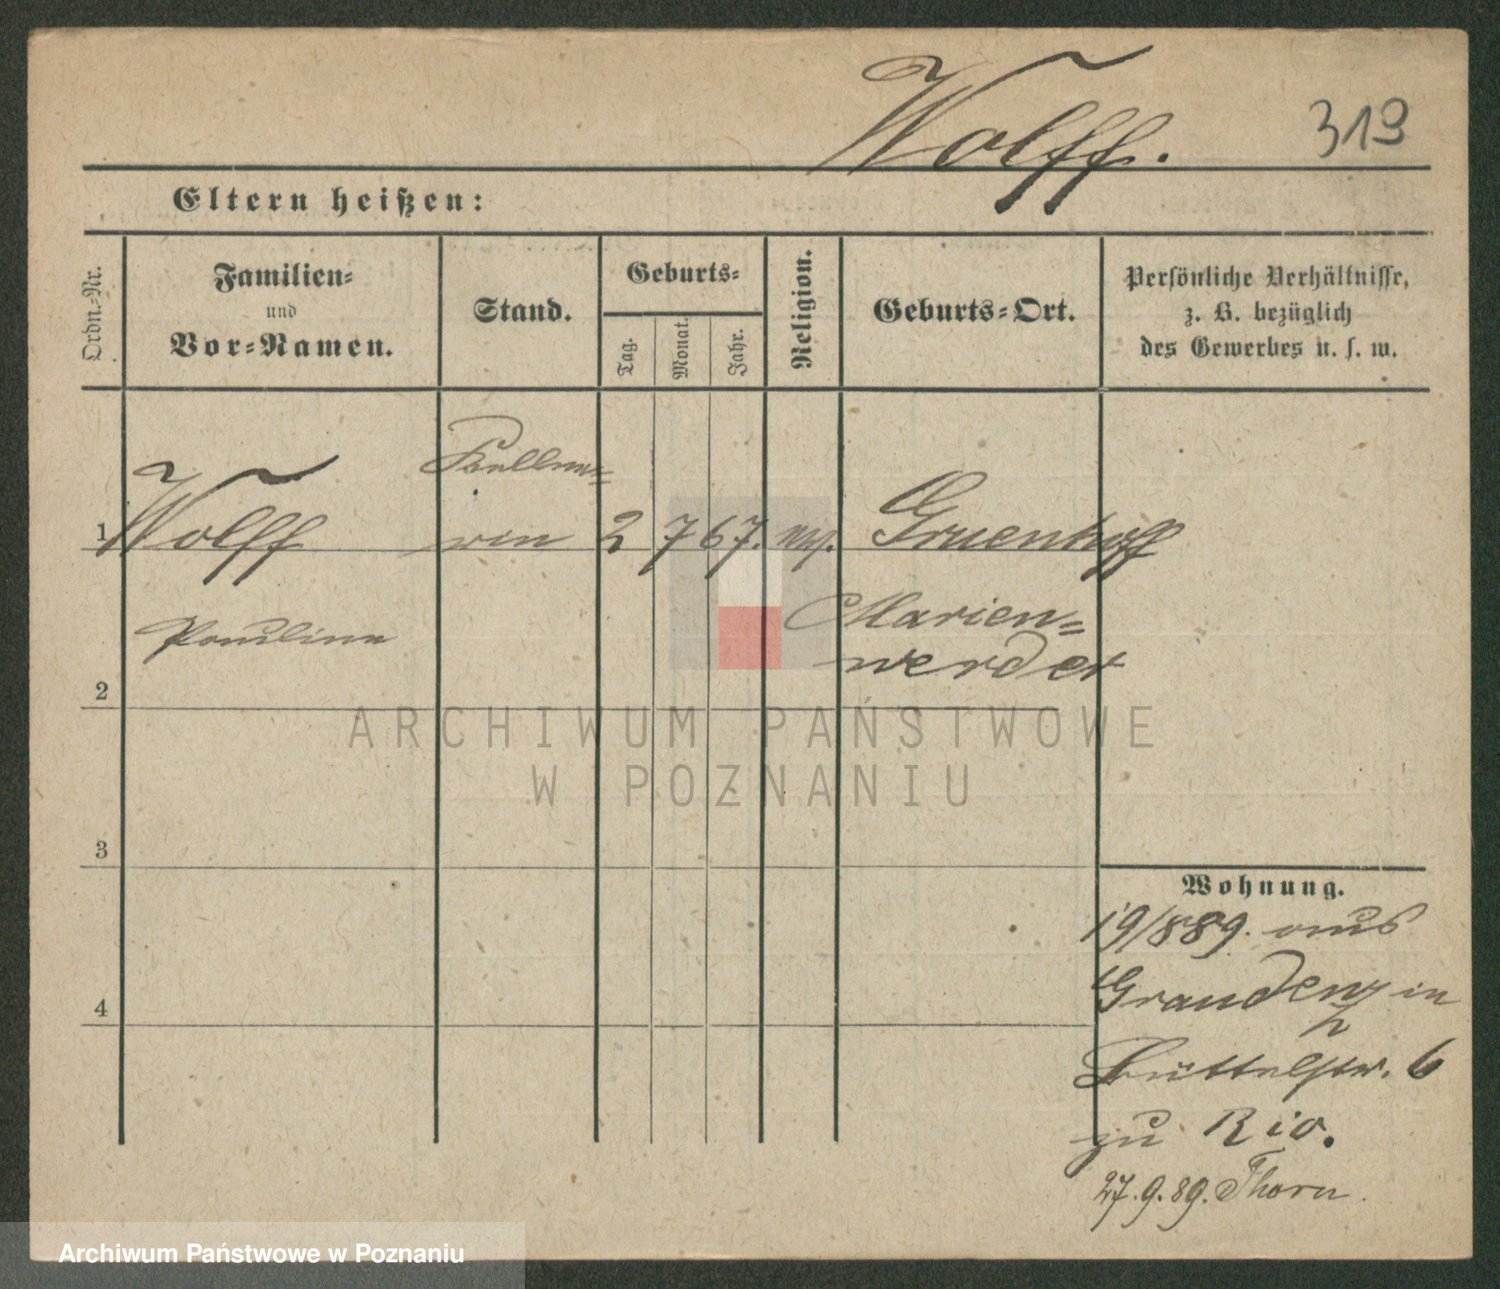 Wolff.
319
Eltern heißen:
Ordn.-Nr.
Familien-
und
Vor-Namen.
Stand.
Geburts-
Tag.
Monat.
Jahr.
Religion.
Geburts-Ort.
Persönliche Verhältnisse,
z. B. bezüglich
des Gewerbes u. s. w.
Kellne-
1 Wolff rin 2 7 67. ev. Gruenhoff
Marien-
Pauline
werder
2
ARCHIWUM PAŃSTWOWE
W POZNANIU
3
Wohnung.
19/889. aus
Graudenz in
4
Büttelstr. 6
zu Rio.
27.9.89. Thorn.
Archiwum Państwowe w Poznaniu